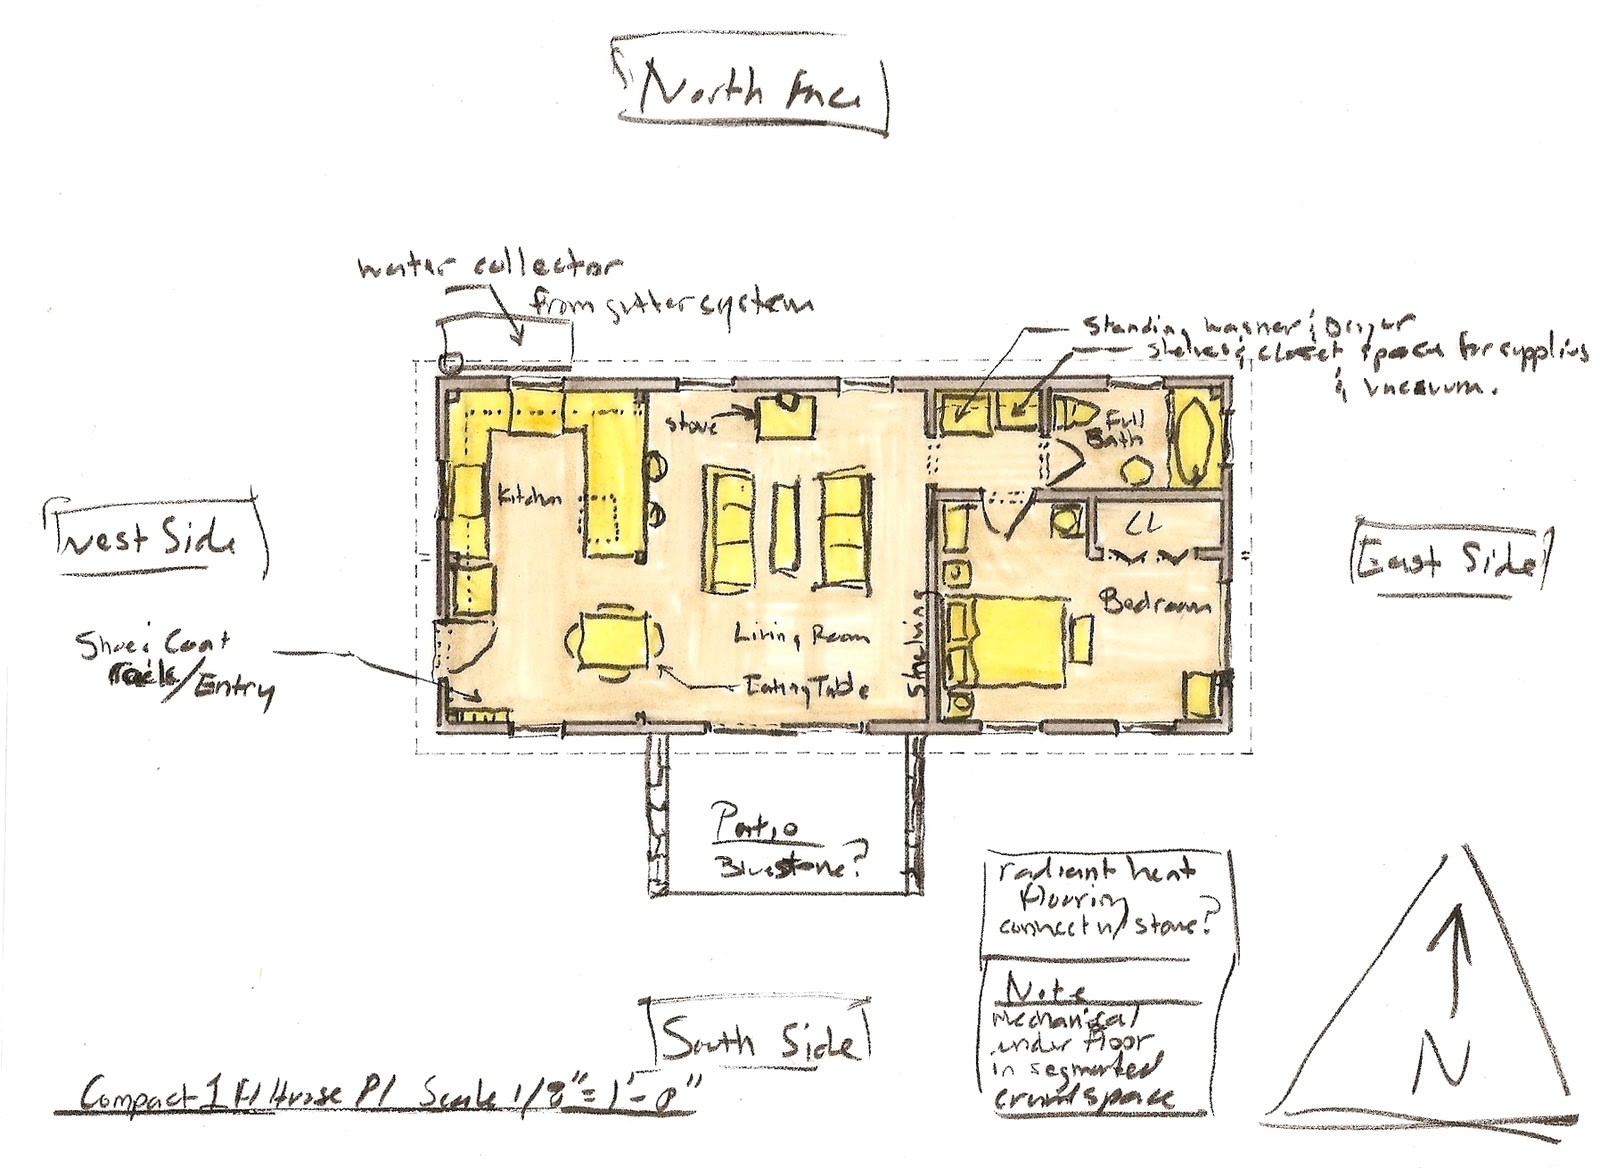 North Face
water collector
from gutter system
Standing washer & Dryer
shelves & closet space for supplies
& vacuum.
stove
Full
Bath
Kitchen
CL
West Side
East Side
Bedroom
Shoe & Coat
rack/Entry
Living Room
shelving
Eating Table
Patio
Bluestone?
radiant heat
flooring
connect w/ stove?
Note
Mechanical
under floor
in segmented
crawlspace
N
South Side
Compact 1 Fl House Pl Scale 1/8" = 1'-0"